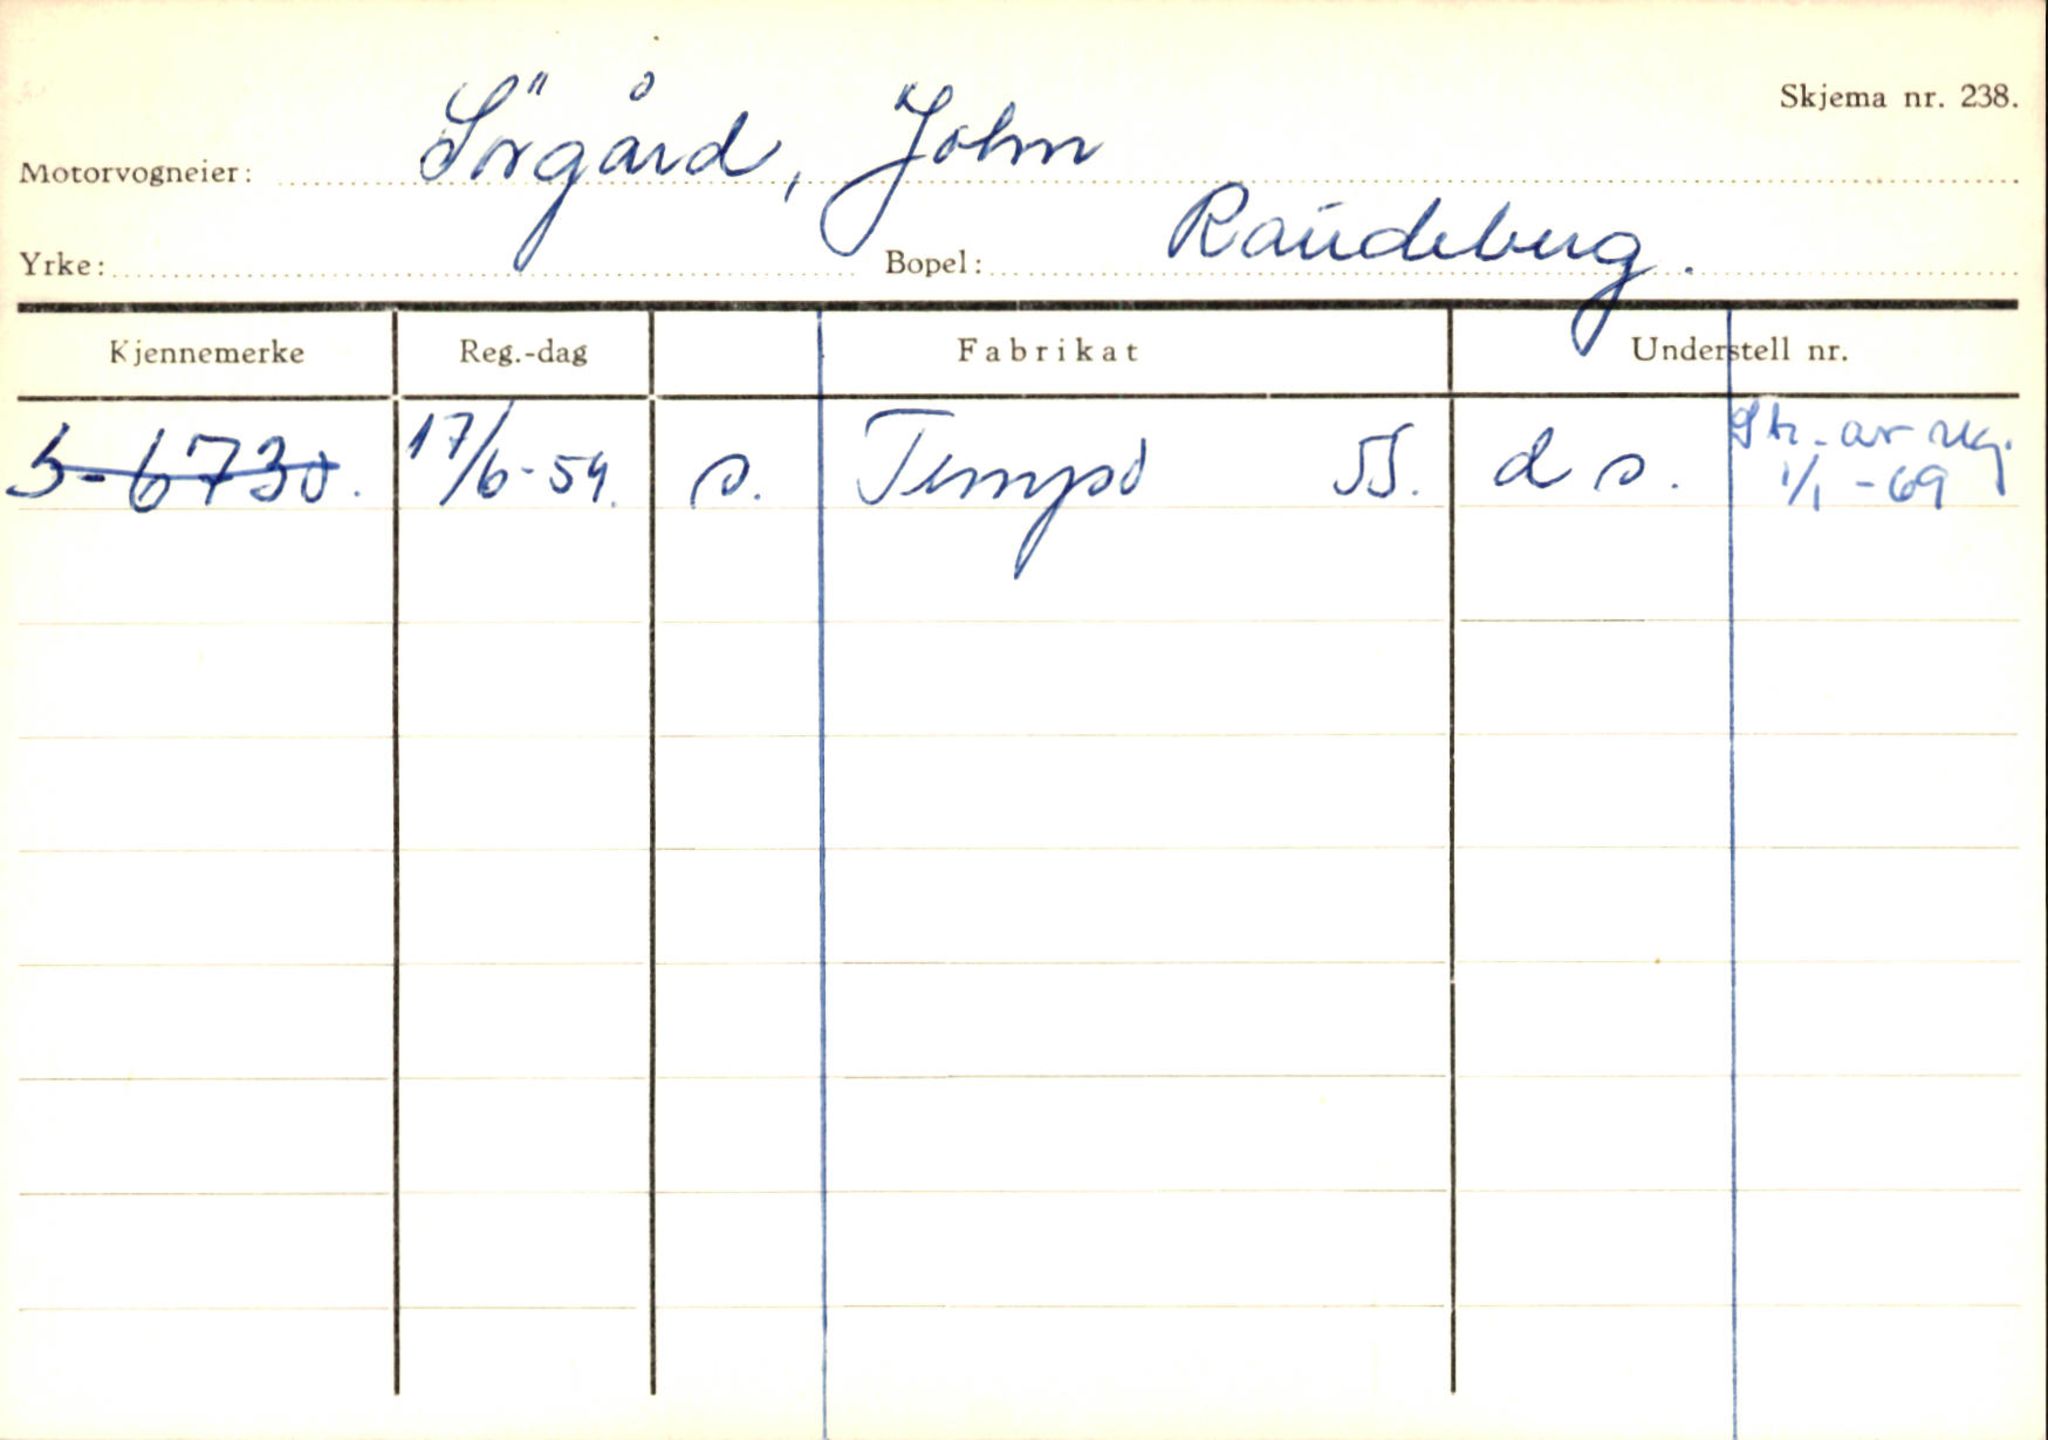 Skjema nr. 238.
Motorvogneier: Sörgård, John
Yrke: Bopel: Raudeberg.
Kjennemerke Reg.-dag Fabrikat Understell nr.
S-6730. 17/6-59. s. Tempo 55. d s. Str. av reg.
1/1-69